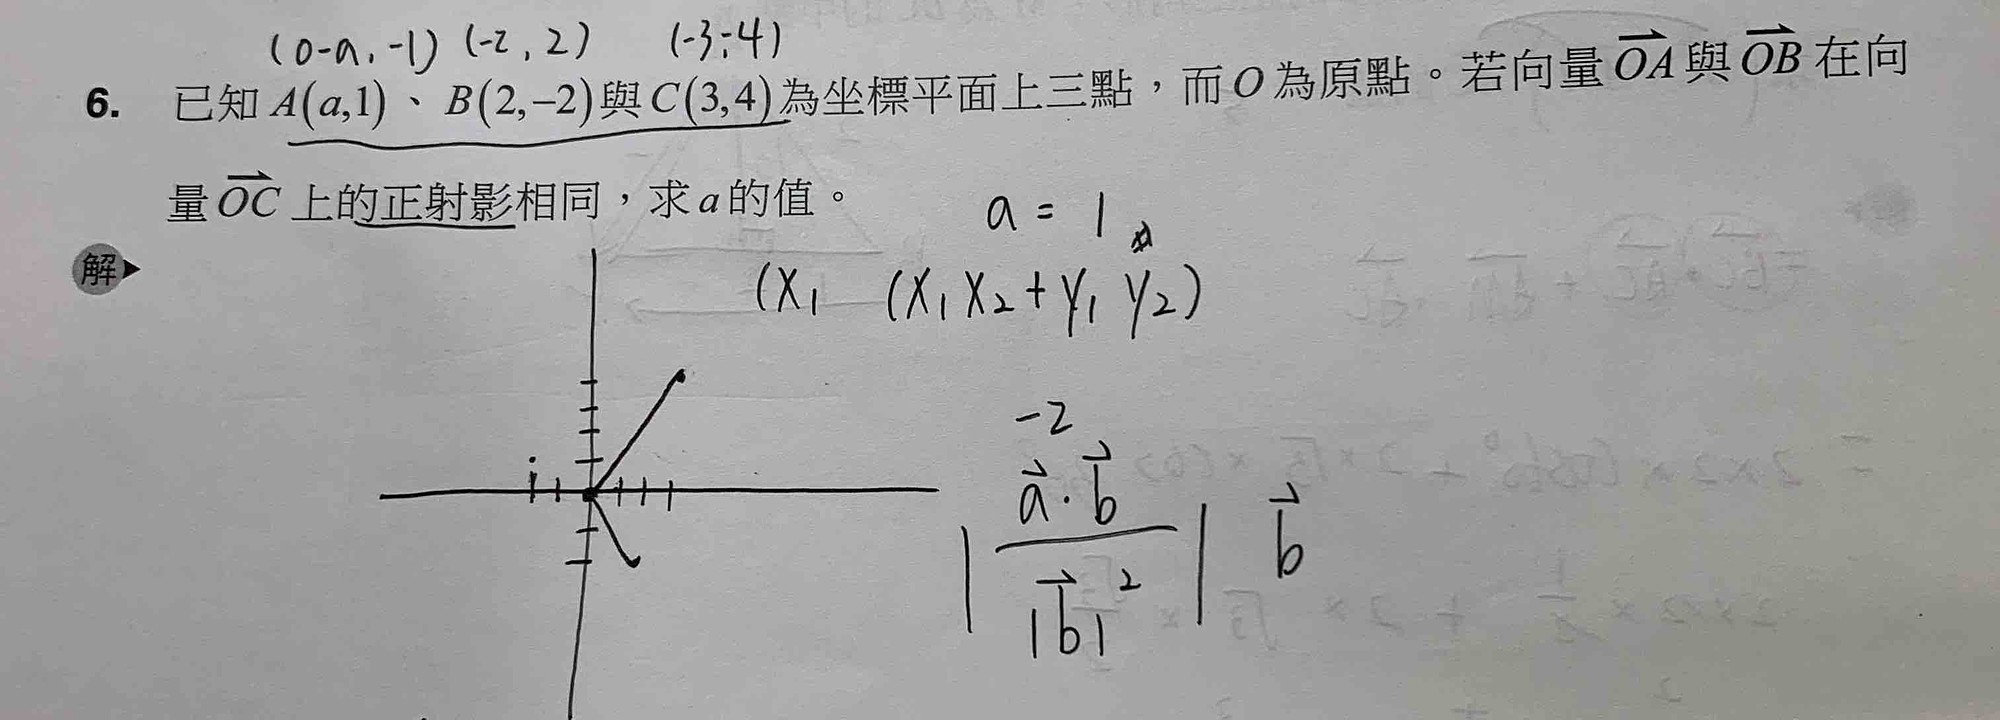 (0-a, -1) (-2, 2) (-3, -4)
6. 已知A(a,1)、B(2,−2)與C(3,4)為坐標平面上三點，而O為原點。若向量$\overrightarrow{OA}$與$\overrightarrow{OB}$在向
量$\overrightarrow{OC}$上的正射影相同，求a的值。
a = 1
解
(x₁ (x₁x₂+y₁y₂)
-2
$\left|\frac{\vec{a}\cdot\vec{b}}{|\vec{b}|^2}\right|\vec{b}$